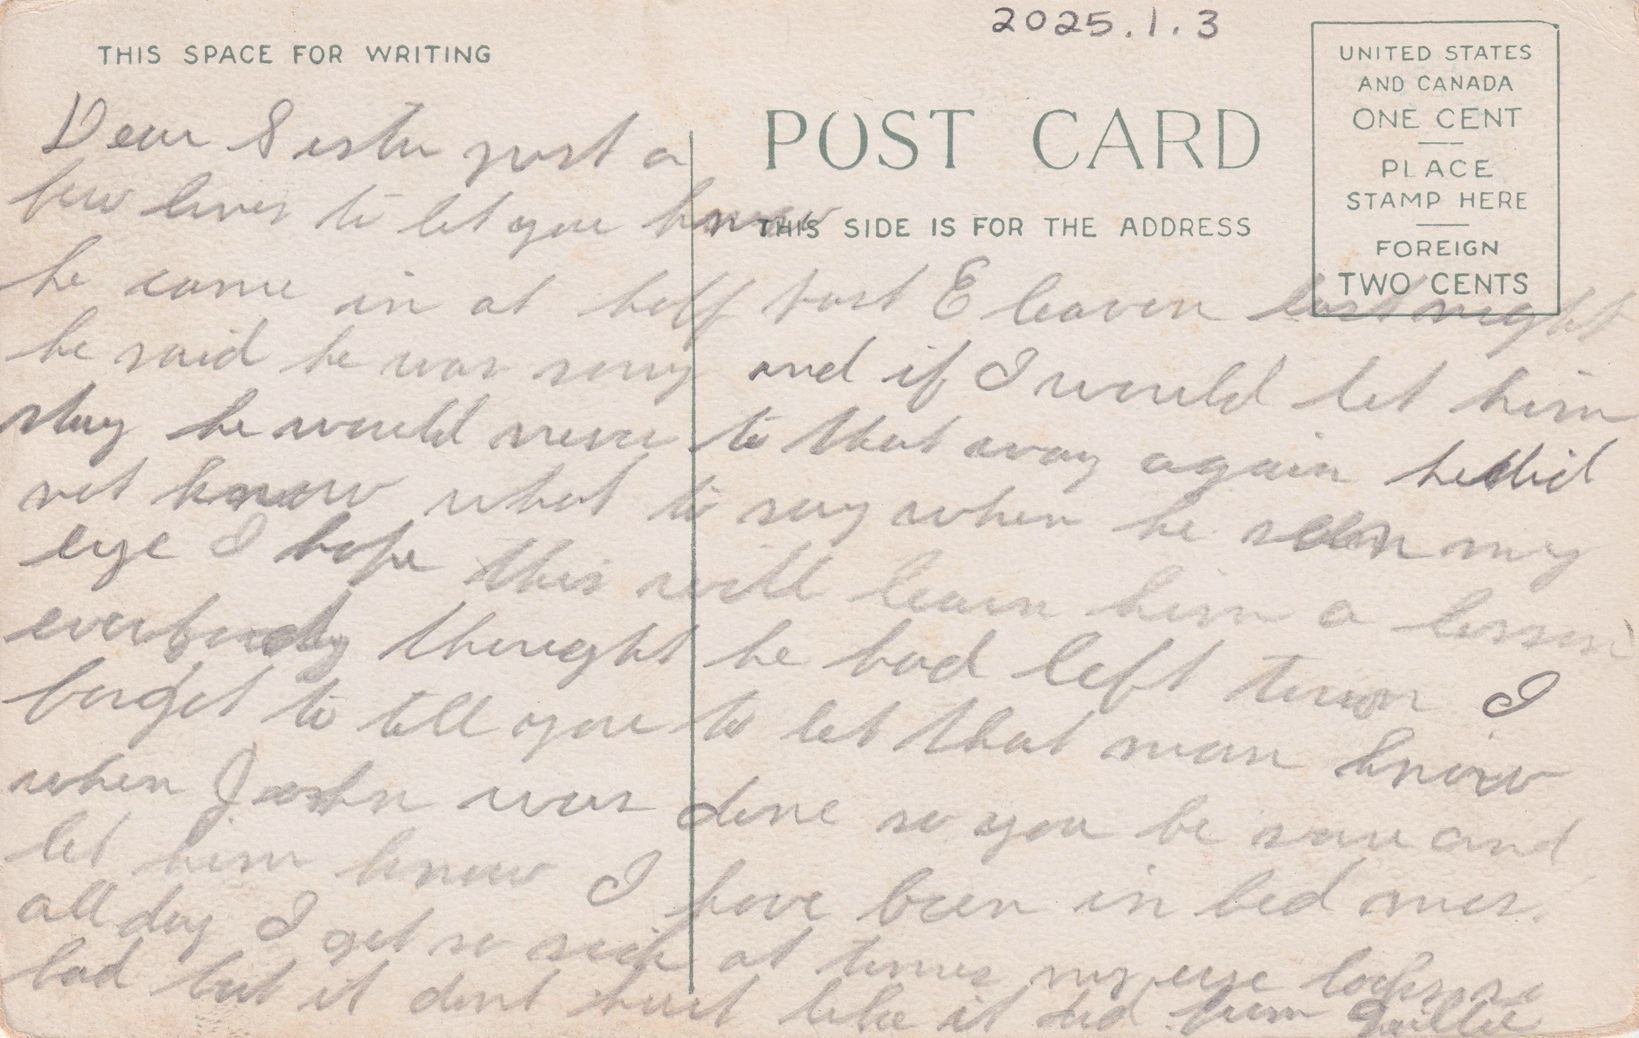 2025.1.3
THIS SPACE FOR WRITING
POST CARD
THIS SIDE IS FOR THE ADDRESS
UNITED STATES
AND CANADA
ONE CENT
PLACE
STAMP HERE
FOREIGN
TWO CENTS
Dear Sister just a
few lines to let you know
he came in at half past Eleaven last night
he said he was sorry and if I would let him
stay he would never to that away again he did
not know what to say when he seen my
eye I hope this will learn him a lesson
everbody thought he had left town I
forget to tell you to let that man know
when John was done so you be sure and
let him know I have been in bed mos.
all day I get so sick at times my eye looks so
bad but it dont hurt like it did from